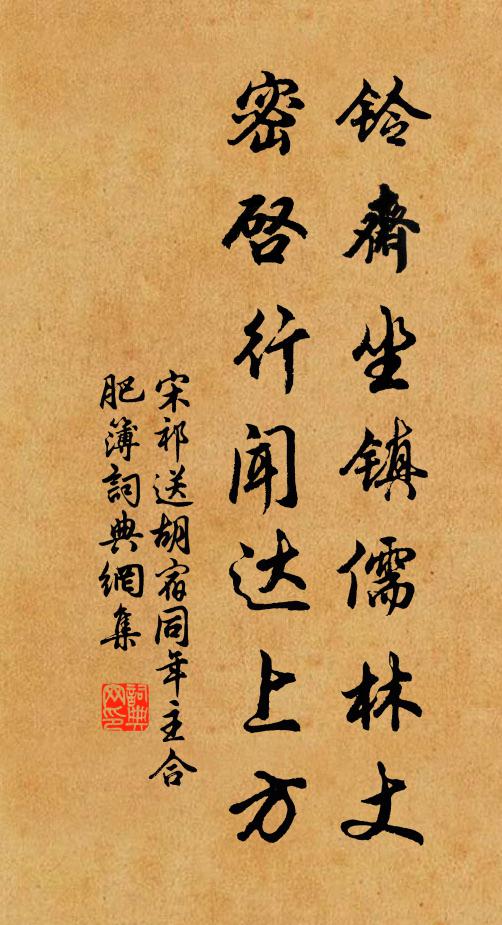 铃斋坐镇儒林丈
密启行闻达上方
宋祁送胡宿同年主合
肥簿詞典網集
詞典网印